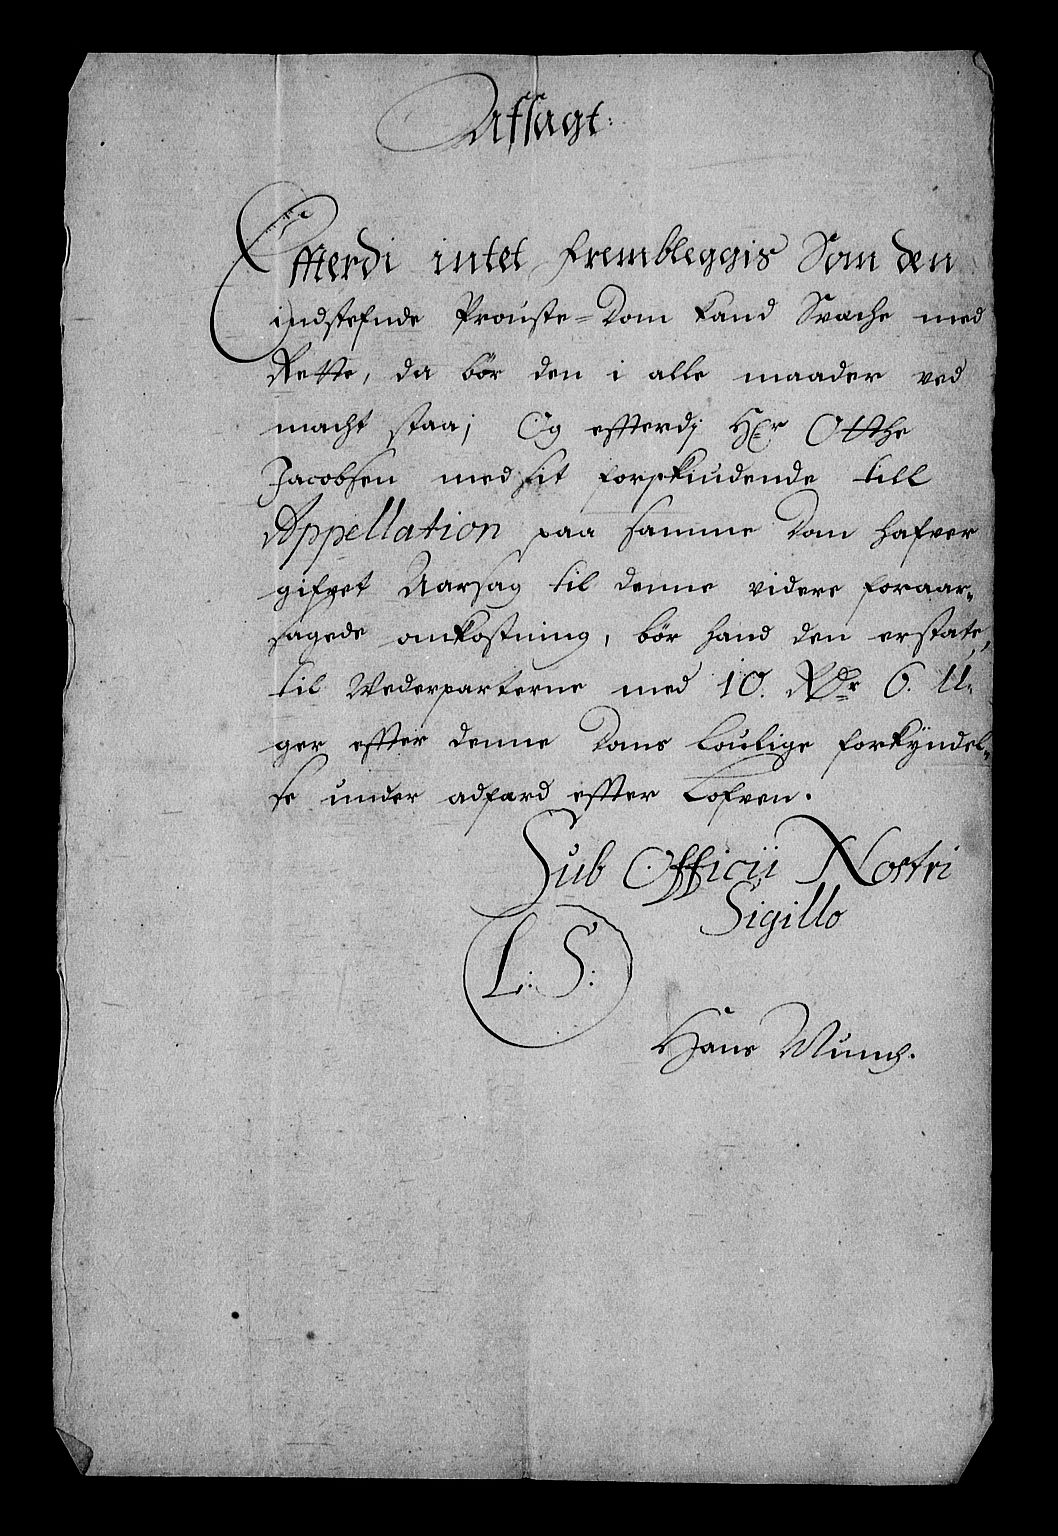 Affsagt:
Efterdi intet frembleggis Som den
indstefnde Prouste=Dom kand Svæche med
Rette, da bør den i alle maader ved
macht staa; Og effterdj Hr Otthe
Jacobsen med sit forskiudende till
Appellation paa samme Dom hafver
gifvet Aarsag til denne videre foraar=
sagede omkostning, bør hand den erstate,
til Wederparterne med 10. Rdr 6. U=
ger effter denne Doms loulige forkyndel=
se under adfærd effter Lofven.
Sub Officii Nostri
Sigillo
L: S:
Hans Munch.